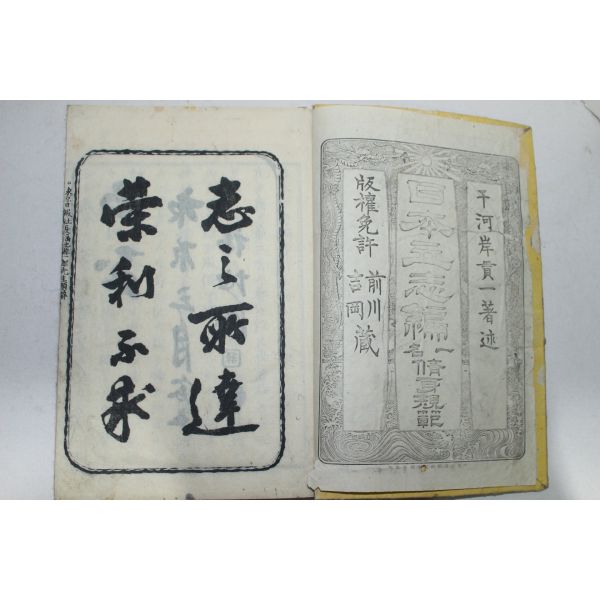 干河岸貫一著述
日本立志編
一名脩身規範
版権免許
前川
吉岡
蔵
志之所達
榮利不求